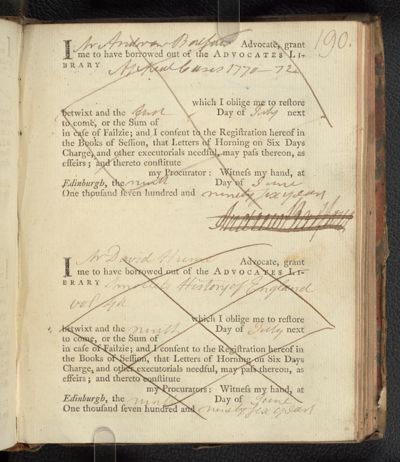 190.
I Mr Andrew Balfour Advocate, grant
me to have borrowed out of the ADVOCATES LI-
BRARY Appeal Cases 1770–72
which I oblige me to reſtore
betwixt and the Day of July next
to come, or the Sum of
in caſe of Failzie; and I conſent to the Regiſtration hereof in
the Books of Seſſion, that Letters of Horning on Six Days
Charge, and other executorials needful, may paſs thereon, as
effeirs; and thereto conſtitute
my Procurator: Witneſs my hand, at
Edinburgh, the ninth Day of June
One thouſand ſeven hundred and ninety six years
Andrew Balfour
I Mr David Hume Advocate, grant
me to have borrowed out of the ADVOCATES LI-
BRARY Smollet's History of England
vol 4th
which I oblige me to reſtore
betwixt and the ninth Day of July next
to come, or the Sum of
in caſe of Failzie; and I conſent to the Regiſtration hereof in
the Books of Seſſion, that Letters of Horning on Six Days
Charge, and other executorials needful, may paſs thereon, as
effeirs; and thereto conſtitute
my Procurators: Witneſs my hand, at
Edinburgh, the ninth Day of June
One thouſand ſeven hundred and ninety six years